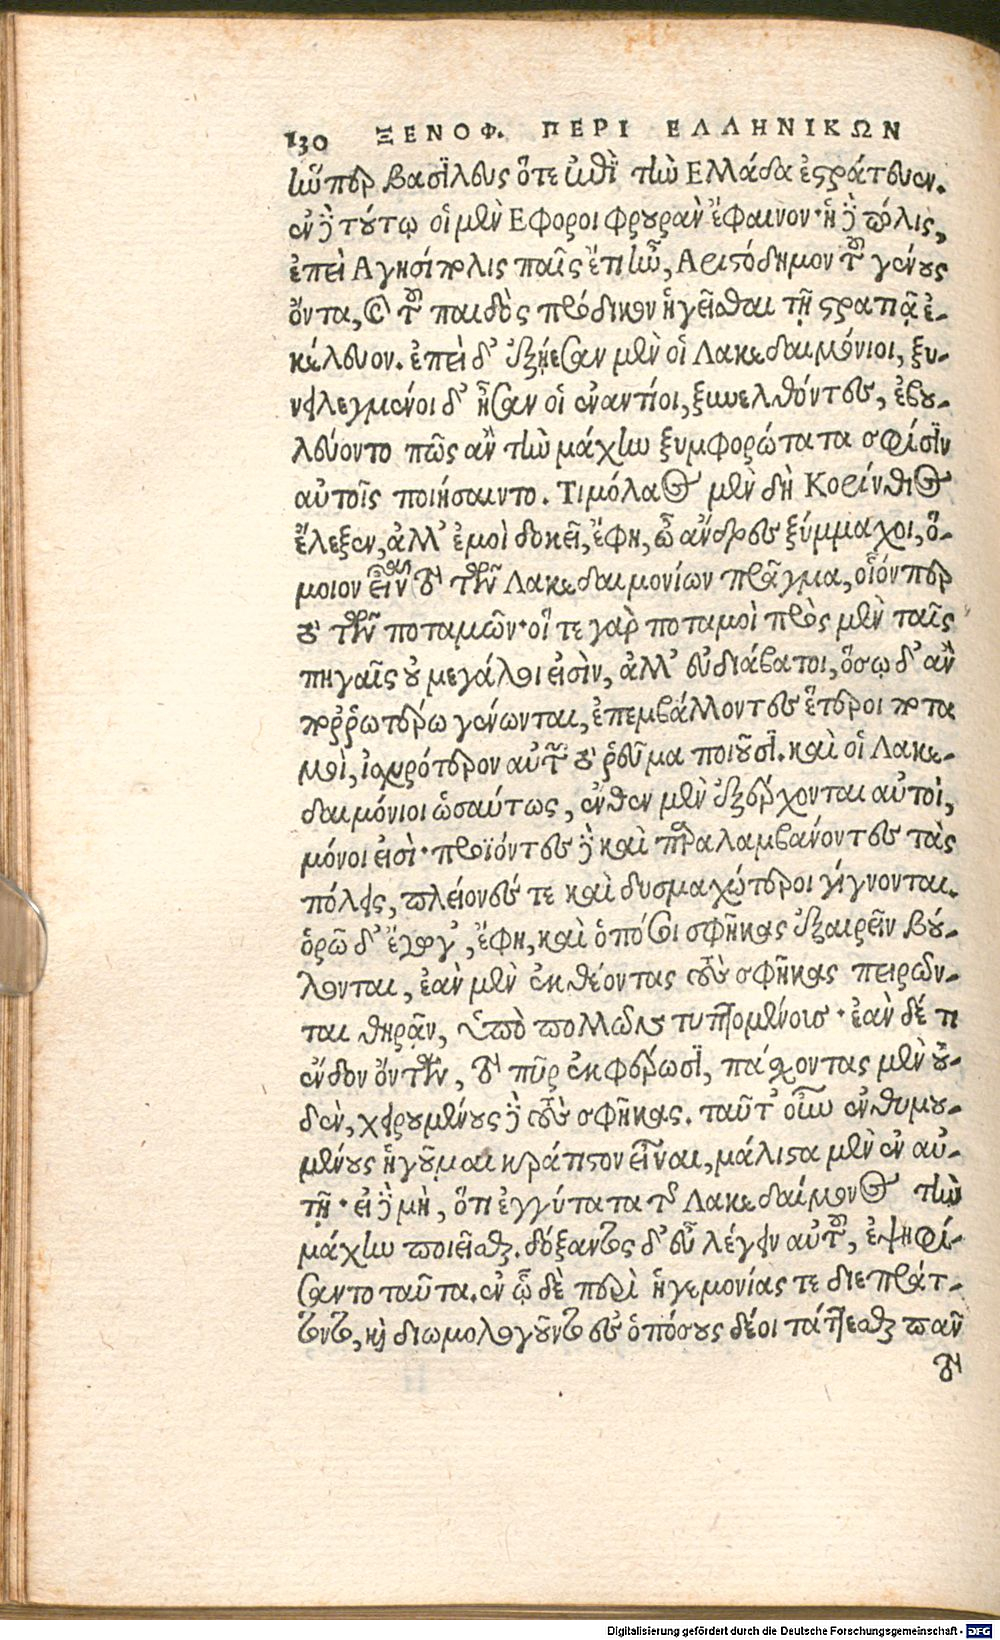 130 ΞΕΝΟΦ. ΠΕΡΙ ΕΛΛΗΝΙΚΩΝ
ἣνπερ βασϊλεὺς ὅτε ἐπὶ τὴν Ελλάδα ἐστράτευεν.
ἐν δὲ τούτῳ οἱ μὲν Εφοροι φρουρὰν ἔφαινον· ἡ δὲ πόλις,
ἐπεὶ Αγησίπολις παῖς ἔτι ἦν, Αριστόδημον τοῦ γένους
ὄντα, καὶ τοῦ παιδὸς πρόδικον ἡγεῖσθαι τῇ στρατιᾷ ἐ-
κέλευον. ἐπεὶ δ' ἐξῄεσαν μὲν οἱ Λακεδαιμόνιοι, ξυ-
νειλεγμένοι δ' ἦσαν οἱ ἐναντίοι, ξυνελθόντες, ἐβου-
λεύοντο πῶς ἂν τὴν μάχην ξυμφορώτατα σφίσϊν
αὐτοῖς ποιήσαιντο. Τιμόλαος μὲν δὴ Κορίνθιος
ἔλεξεν, ἀλλ' ἐμοὶ δοκεῖ, ἔφη, ὦ ἄνδρες ξύμμαχοι, ὅ-
μοιον εἶναι τὸ τῶν Λακεδαιμονίων πρᾶγμα, οἷόν περ
τὸ τῶν ποταμῶν· οἵ τε γὰρ ποταμοὶ πρὸς μὲν ταῖς
πηγαῖς οὐ μεγάλοι εἰσὶν, ἀλλ' εὐδιάβατοι, ὅσῳ δ' ἂν
πορῤῥωτέρω γένωνται, ἐπεμβάλλοντες ἕτεροι ποτα
μοὶ, ἰσχυρότερον αὐτῶν τὸ ῥεῦμα ποιοῦσϊ. καὶ οἱ Λακε-
δαιμόνιοι ὡσαύτως, ἔνθεν μὲν ἐξέρχονται αὐτοὶ,
μόνοι εἰσὶ· προϊόντες δὲ καὶ παραλαμβάνοντες τὰς
πόλεις, πλείονές τε καὶ δυσμαχώτεροι γίγνονται.
ὁρῶ δ' ἔγωγ', ἔφη, καὶ ὁπόσοι σφῆκας ἐξαιρεῖν βού-
λονται, ἐὰν μὲν ἐκθέοντας τοὺς σφῆκας πειρῶν-
ται θηρᾷν, ὑπὸ πολλῶν τυπτομένους· ἐὰν δέ τι
ἔνδον ὄντων, τὸ πῦρ ἐκφέρωσϊ, πάσχοντας μὲν οὐ-
δὲν, χειρουμένους δὲ τοὺς σφῆκας. ταῦτ' οὖν ἐνθυμού-
μενους ἡγοῦμαι κράτιστον εἶναι, μάλιστα μὲν ἐν αὐ-
τῇ· εἰ δὲ μὴ, ὅτι ἐγγύτατα τῆς Λακεδαίμονος τὴν
μάχην ποιεῖσθαι. δόξαντος δ' εὖ λέγειν αὐτοῦ, ἐψηφί-
σαντο ταῦτα. ἐν ᾧ δὲ περὶ ἡγεμονίας τε διεπράτ-
τοντο, καὶ διωμολογοῦντο ἐς ὁπόσους δέοι τάττεσθαι πᾶν
τὸ